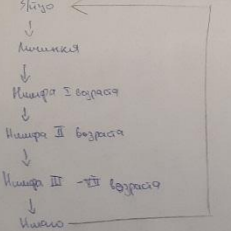 Яйцо
Личинка
Нимфа I возраста
Нимфа II возраста
Нимфа III - VII возраста
Имаго